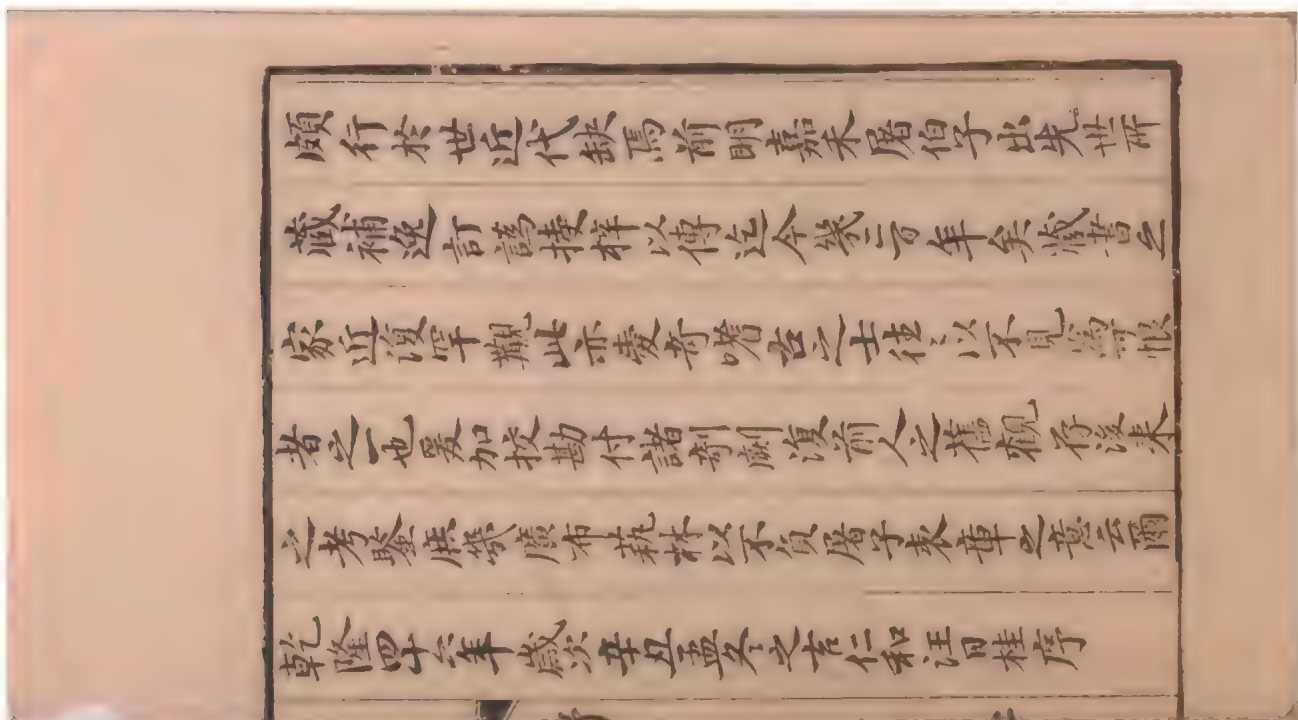 頗行於世近代缺焉前明嘉禾屠伯子出先世所
藏補逸訂譌授梓以傳迄今幾二百年矣藏書之
家近復罕觀此亦愛奇嗜古之士往〻以不見為恨
者之一也爰加挍勘付諸剞劂復前人之舊觀存後來
之考鑒庶幾廣布蓺林以不負屠子表章之意云爾
乾隆四十六年歲次辛丑孟冬之吉仁和汪日桂序